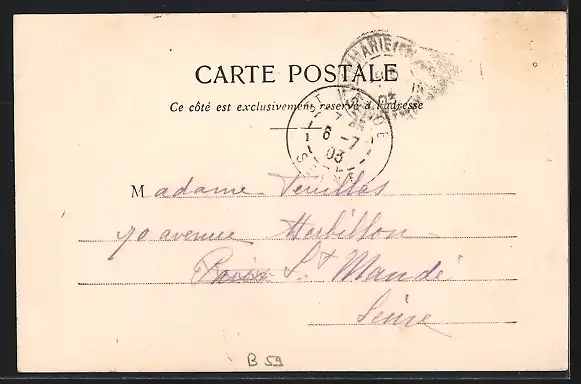 CARTE POSTALE
Ce côté est exclusivement réservé à l'adresse
6 -7
03
Madame Feuillas
70 avenue Herbillon
Paris St Mandé
Seine
B 59